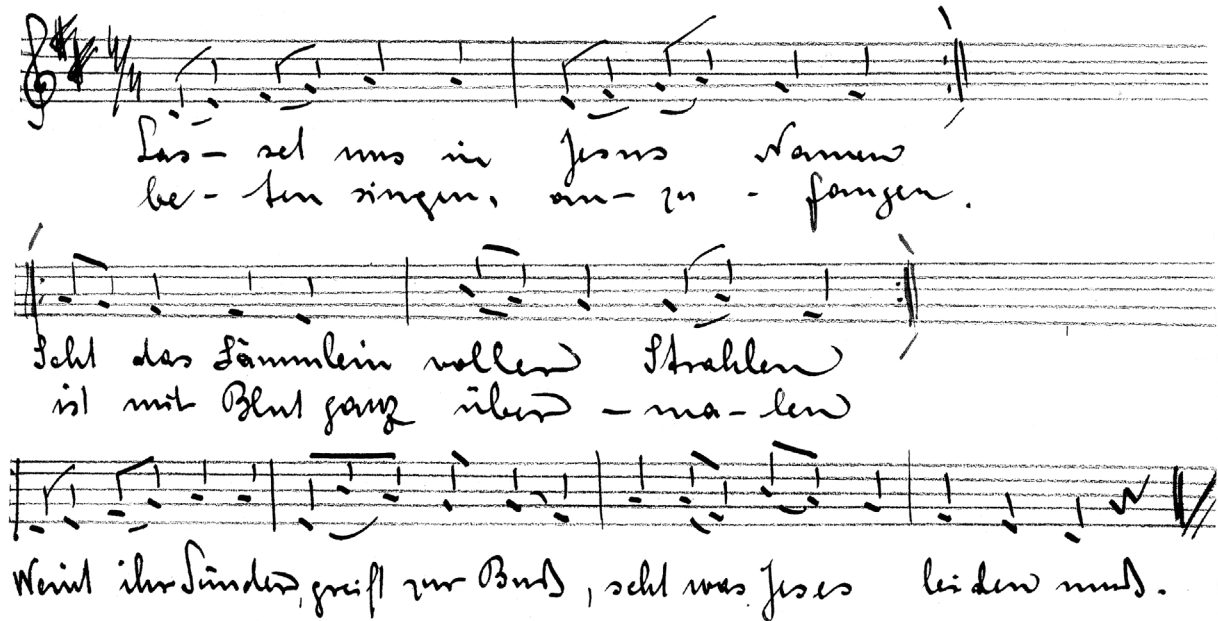 Las- set uns in Jesus Namen
be- ten singen, an- zu - fangen.
Seht das Lämmlein voller Strahlen
ist mit Blut ganz über - ma- len
Weint ihr Sünder, greift zur Buß, seht was Jeses leiden muß.